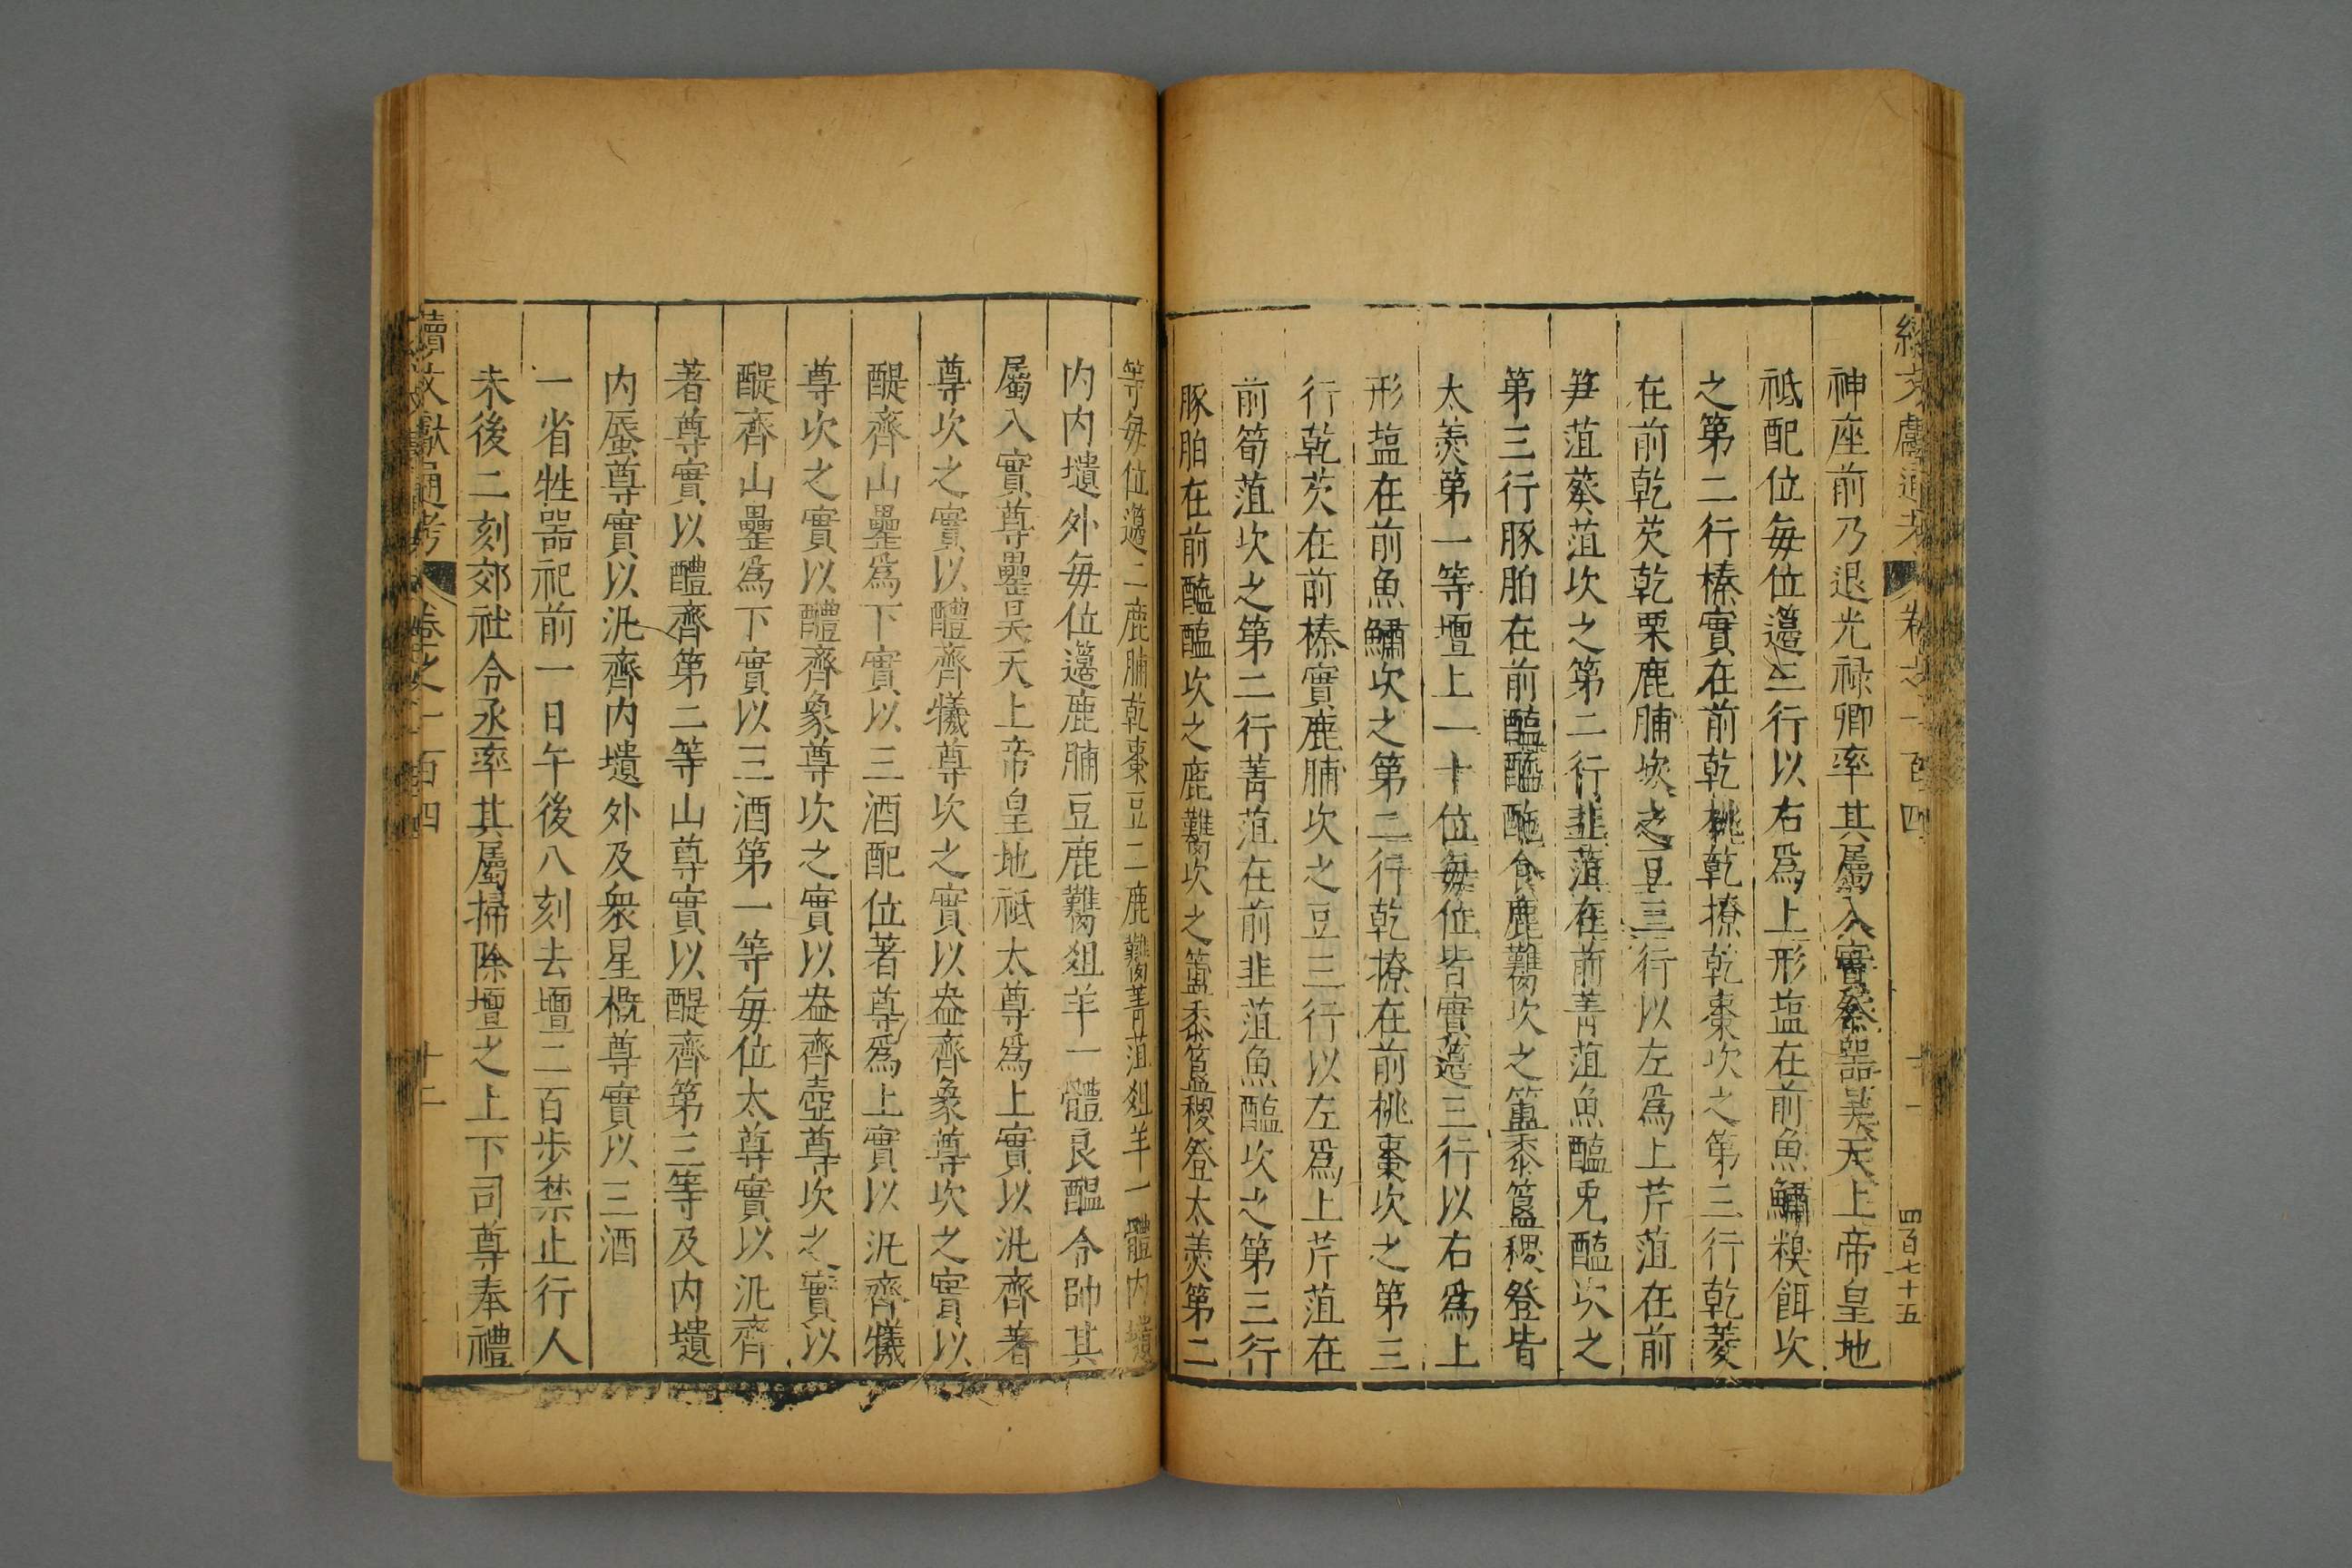 續文獻通考 卷之一百四 十一 四百七十五
神座前乃退光祿卿率其屬入實祭器昊天上帝皇地
祗配位每位籩三行以右爲上形塩在前魚鱐糗餌次
之第二行榛實在前乾桃乾橑乾棗次之第三行乾菱
在前乾芡乾栗鹿脯次之豆三行以左爲上芹菹在前
笋菹葵菹次之第二行韭菹在前菁菹魚醢兎醢次之
第三行豚胉在前醓醢酏食鹿臡次之簠黍簋稷登皆
太羹第一等壇上一十位每位皆實籩三行以右爲上
形塩在前魚鱐次之第二行乾橑在前桃棗次之第三
行乾芡在前榛實鹿脯次之豆三行以左爲上芹菹在
前筍菹次之第二行菁菹在前韭菹魚醢次之第三行
豚胉在前醓醢次之鹿臡次之簠黍簋稷登太羹第二
等每位籩二鹿脯乾棗豆二鹿臡菁菹俎羊一體內壝
內內壝外每位籩鹿脯豆鹿臡俎羊一體良醞令帥其
屬入實尊罍昊天上帝皇地祗太尊爲上實以汎齊著
尊次之實以醴齊犧尊次之實以盎齊象尊次之實以
醍齊山罍爲下實以三酒配位著尊爲上實以汎齊犧
尊次之實以醴齊象尊次之實以盎齊壺尊次之實以
醍齊山罍爲下實以三酒第一等每位太尊實以汎齊
著尊實以醴齊第二等山尊實以醍齊第三等及內壝
內蜃尊實以汎齊內壝外及衆星概尊實以三酒
一省牲器祀前一日午後八刻去壇二百步禁止行人
未後二刻郊社令丞率其屬掃除壇之上下司尊奉禮
續文獻通考 卷之一百四 十二